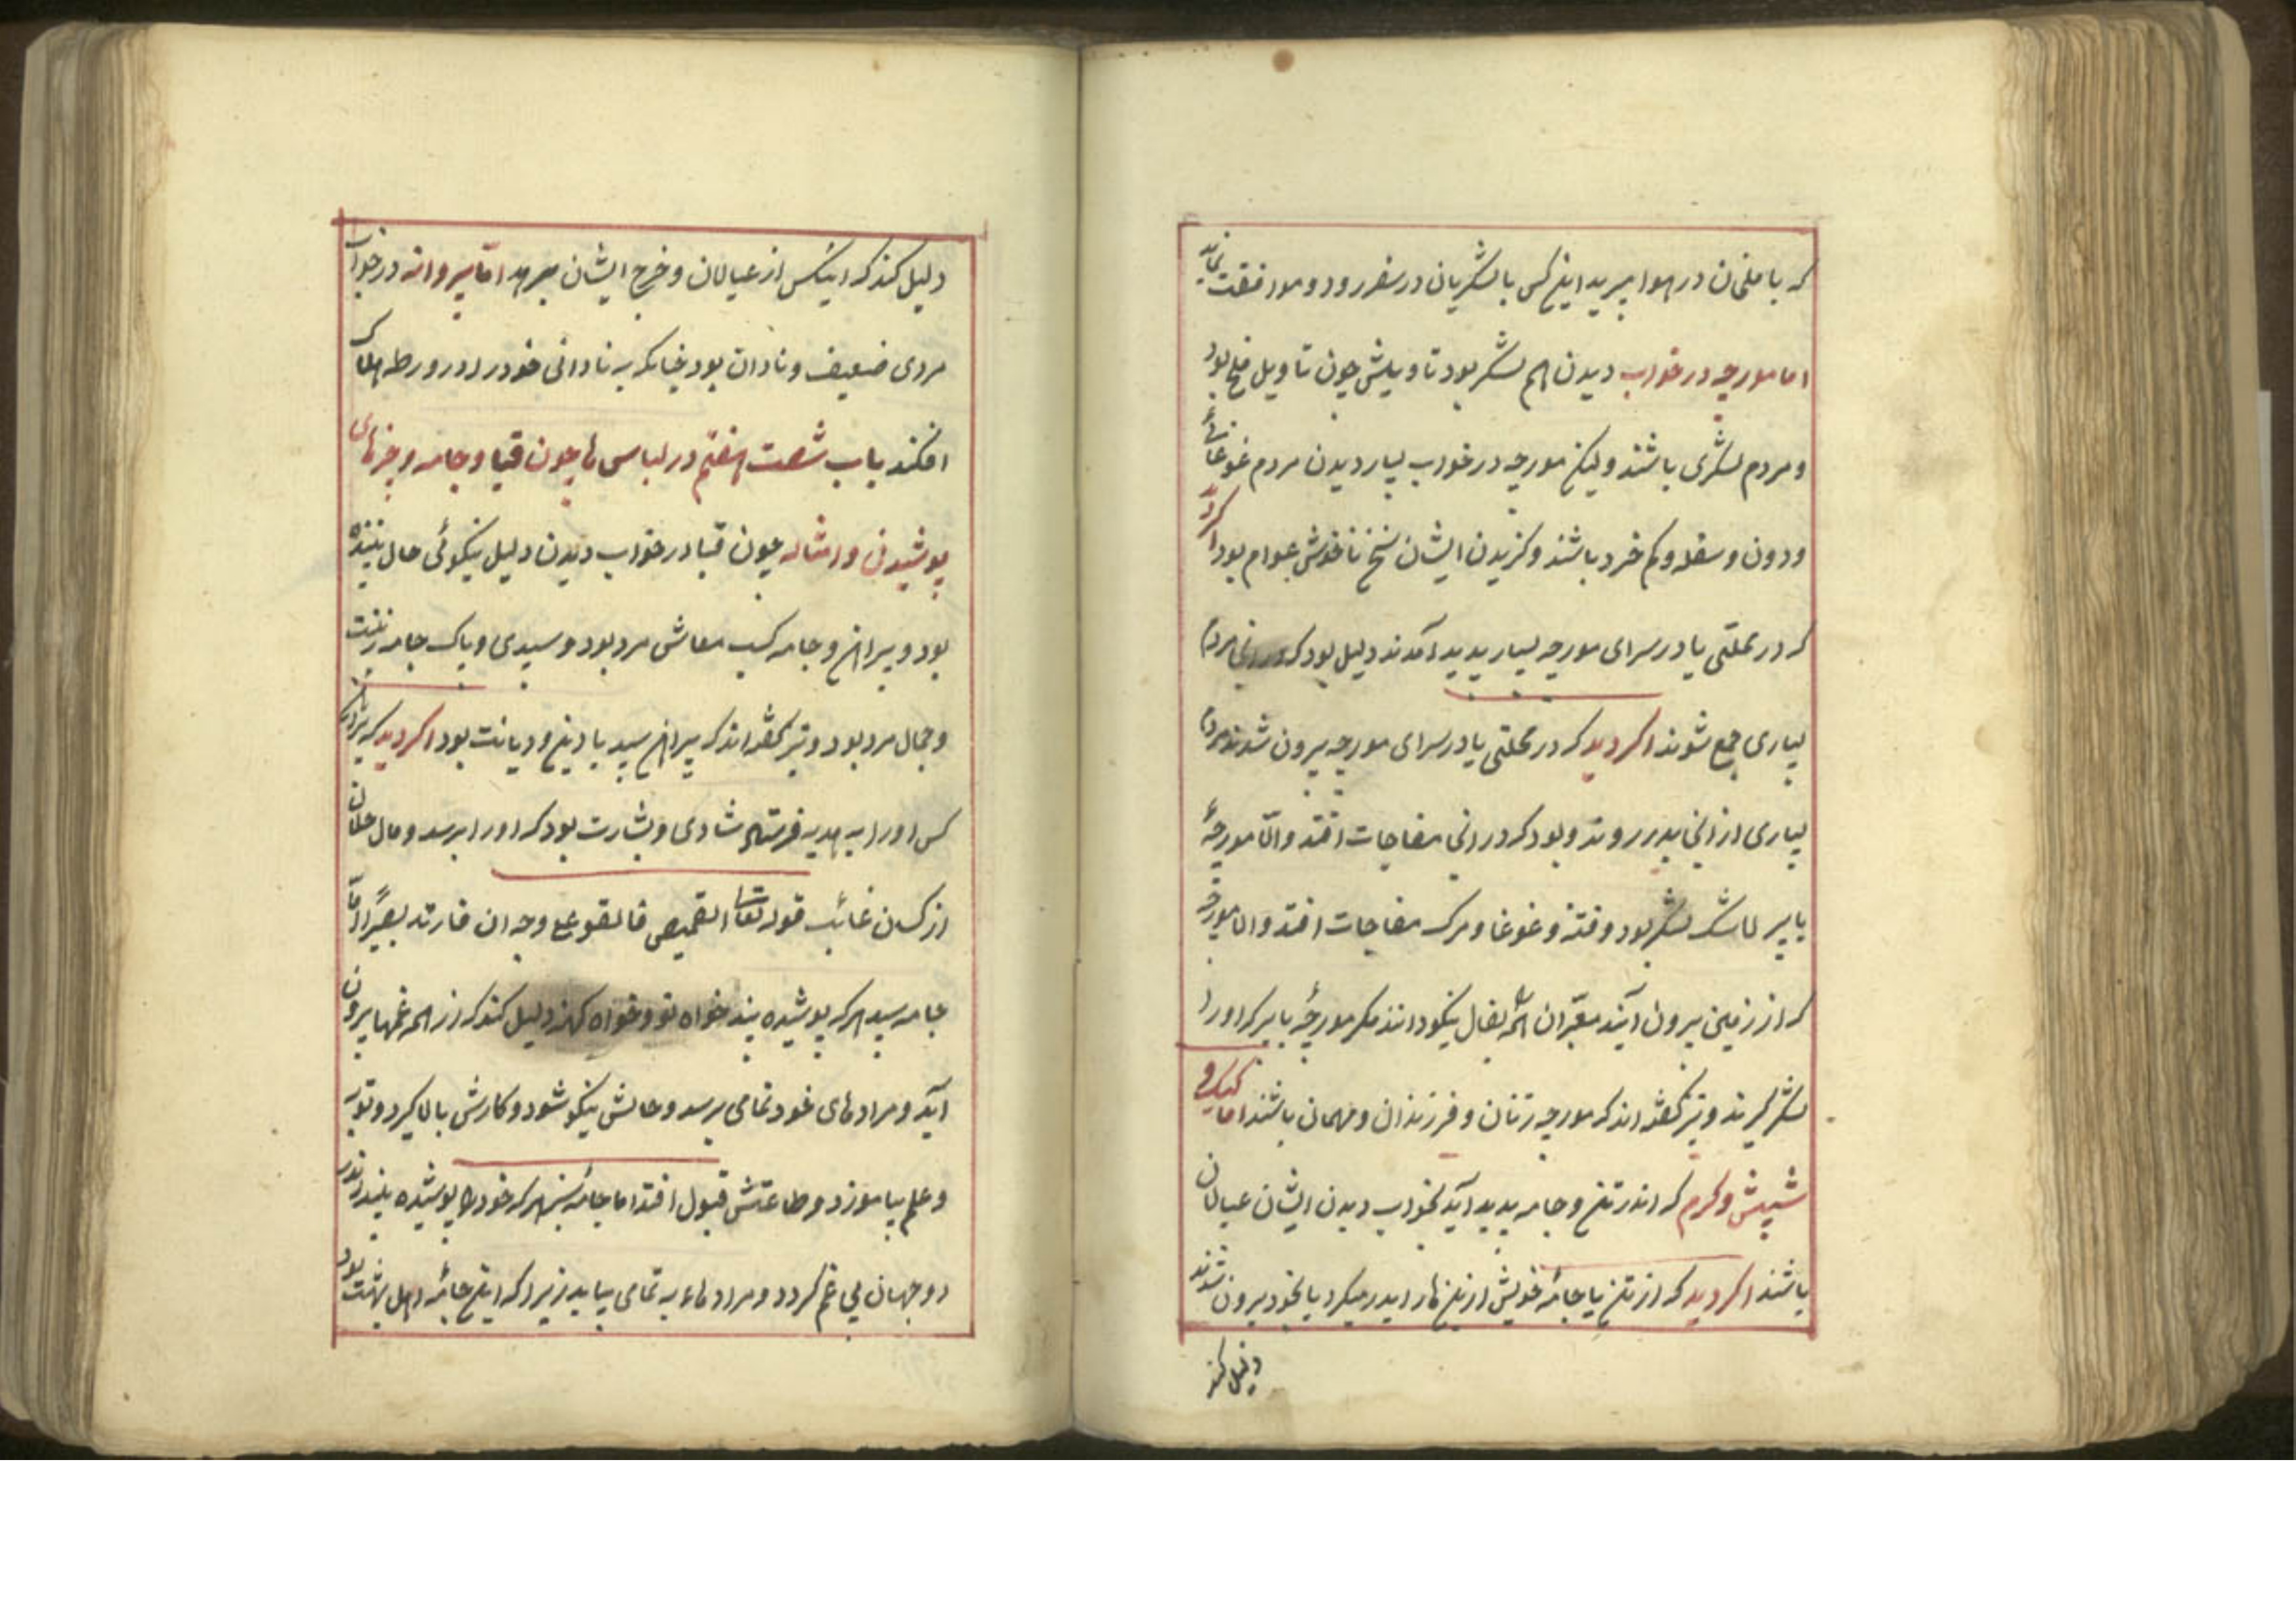 که با ملخان در هوا می‌پرید این کس با لشکریان در سفر رود و موافقت نماید
اما مورچه در خواب دیدن هم لشکر بود تاویلش چون تاویل ملخ بود
و مردم لشکری باشند ولیکن مورچه در خواب بسیار دیدن مردم غوغائی
و دون و سفله و کم خرد باشند و گزیدن ایشان سخن ناخوش عوام بود اگر دید
که در محلتی یا در سرای مورچه بسیار پدید آمدند دلیل بود که در انجا مردم
بسیاری جمع شوند اگر دید که در محلتی یا در سرای مورچه بیرون شدند مردم
بسیاری از انجا بدر روند و بود که در انجا مفاجات افتد و امّا مورچهٔ
با پر لشکر بود و فتنه و غوغا و مرک مفاجات افتد و اما مورچه
که از زمین بیرون آیند معبّران همه بفال نیکو دانند مکر مورچهٔ با پر که او را
لشکر گیرند و نیز گفته اند که مورچه زنان و فرزندان و مهمان باشند اما کیک و
شپش و کرم که اندر تن و جامه پدید آید بخواب دیدن ایشان عیالان
باشند اگر دید که از تن یا جامهٔ خویش ازین ها را بدر میکرد یا بخود بیرون شوند
دلیل کند
دلیل کند که اینکس از عیالان و خرج ایشان برهد امّا پروانه در خواب
مردی ضعیف و نادان بود چنانکه به نادانی خود را در ورطه هلاک
افکند باب شصت هفتم در لباس ها چون قبا و جامه و چیزهای
پوشیدن و امثاله چون قبا در خواب دیدن دلیل نیکوئی حال بیننده
بود و پیراهن و جامه کسب معاش مرد بود و سپیدی و پاک جامه زینت
و جمال مرد بود و نیز گفته اند که پیراهن سپید با دین و دیانت بود اگر دید که
کس او را به هدیه فرستاد شادی و بشارت بود که او را برسد و مال حلال
از کسان غائب قوله تعالی القمیص فالقوه علی وجه ابی فارتد بصیرًا امّا
جامه سپید هر که پوشیده بیند خواه نو و خواه کهنه دلیل کند که از همه غمها بیرون
آید و مرادهای خود تمامی برسد و حالش نیکو شود و کارش بالا گیرد و توبه
و علم بیاموزد و طاعتش قبول افتد اما جامهٔ سبز هر که خود را پوشیده بیند اندر
دو جهان بی غم گردد و مرادهاء به تمامی بیابد زیرا که این جامهٔ اهل بهشت بود